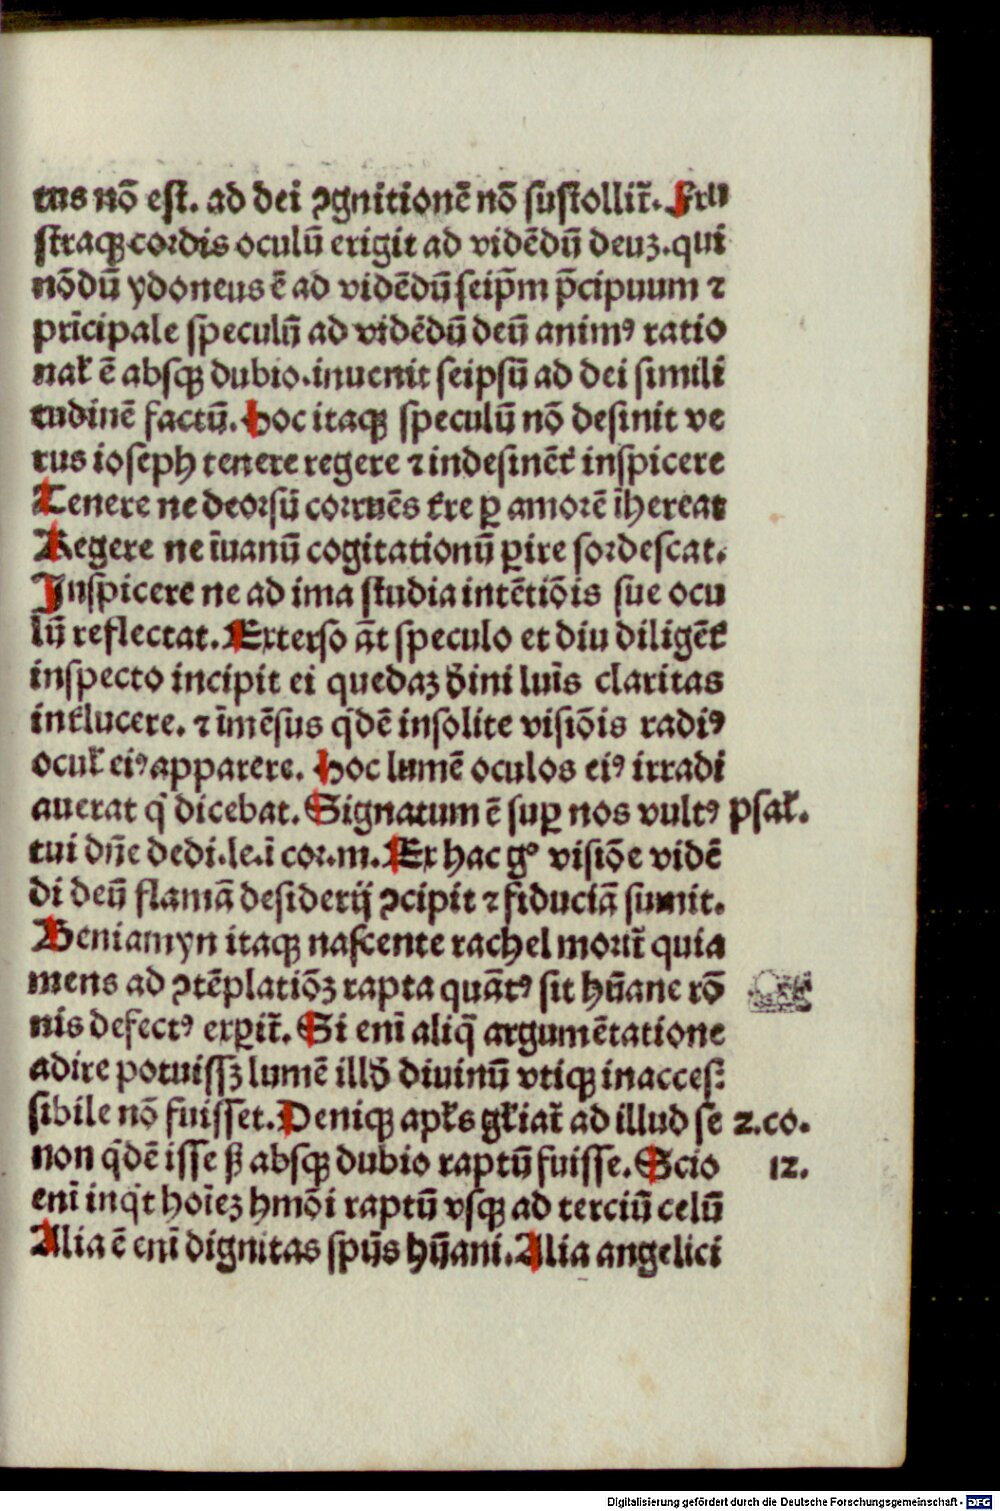 tus nō est. ad dei ꝯgnitionē nō sustollit᷑. Fru
straqꝫ cordis oculū erigit ad vidēdū deuꝫ. qui
nōdū ydoneus ē ad vidēdū seip̄m p̄cipuum ⁊
prīcipale speculū ad vidēdū deū animꝰ ratio
nal̓ ē absqꝫ dubio. inuenit seipsū ad dei simili
tudinē factū. Hoc itaqꝫ speculū nō desinit ve
rus ioseph tenere regere ⁊ indesinēt̓ inspicere
Tenere ne deorsū corruēs t̓re ꝑ amorē īhereat
Regere ne īuanū cogitationū ꝑire sordescat.
Inspicere ne ad ima studia intētiōis sue ocu
lū reflectat. Exterso āt speculo et diu diligēt̓
inspecto incipit ei quedaꝫ d̓ini luīs claritas
int̓lucere. ⁊ īmēsus q̓dē insolite visiōis radiꝰ
ocul̓ eiꝰ apparere. Hoc lumē oculos eiꝰ irradi
auerat q̓ dicebat. Signatum ē suꝑ nos vultꝰ psal̓.
tui dn̄e dedi. le. ī cor. m. Ex hac gͦ visiōe vidē
di deū flamā desiderij ꝯcipit ⁊ fiduciā sumit.
Beniamyn itaqꝫ nascente rachel morit᷑ quia
mens ad ꝯtēplatiōꝫ rapta quātꝰ sit hūane rō
nis defectꝰ exꝑit᷑. Si enī aliq̄ argumētatione
adire potuissꝫ lumē illd̓ diuinū vtiqꝫ inacces⸗
sibile nō fuisset. Deniqꝫ apl̓s gl̓iat᷑ ad illud se 2. co.
non q̓dē isse sꝫ absqꝫ dubio raptū fuisse. Scio 12.
enī inq̓t hoīeꝫ hmōi raptū vsqꝫ ad terciū celū
Alia ē enī dignitas sp̄ūs hūani. Alia angelici
Digitalisierung gefördert durch die Deutsche Forschungsgemeinschaft - DFG